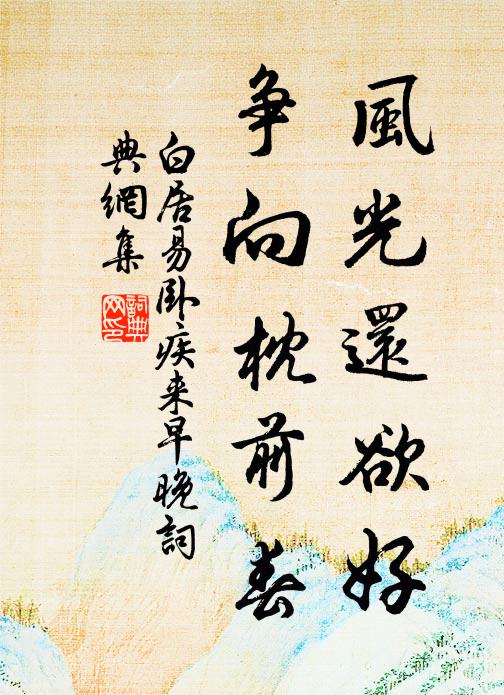 風光還欲好
争向枕前春
白居易卧疾来早晚詞
典網集
詞典
网印